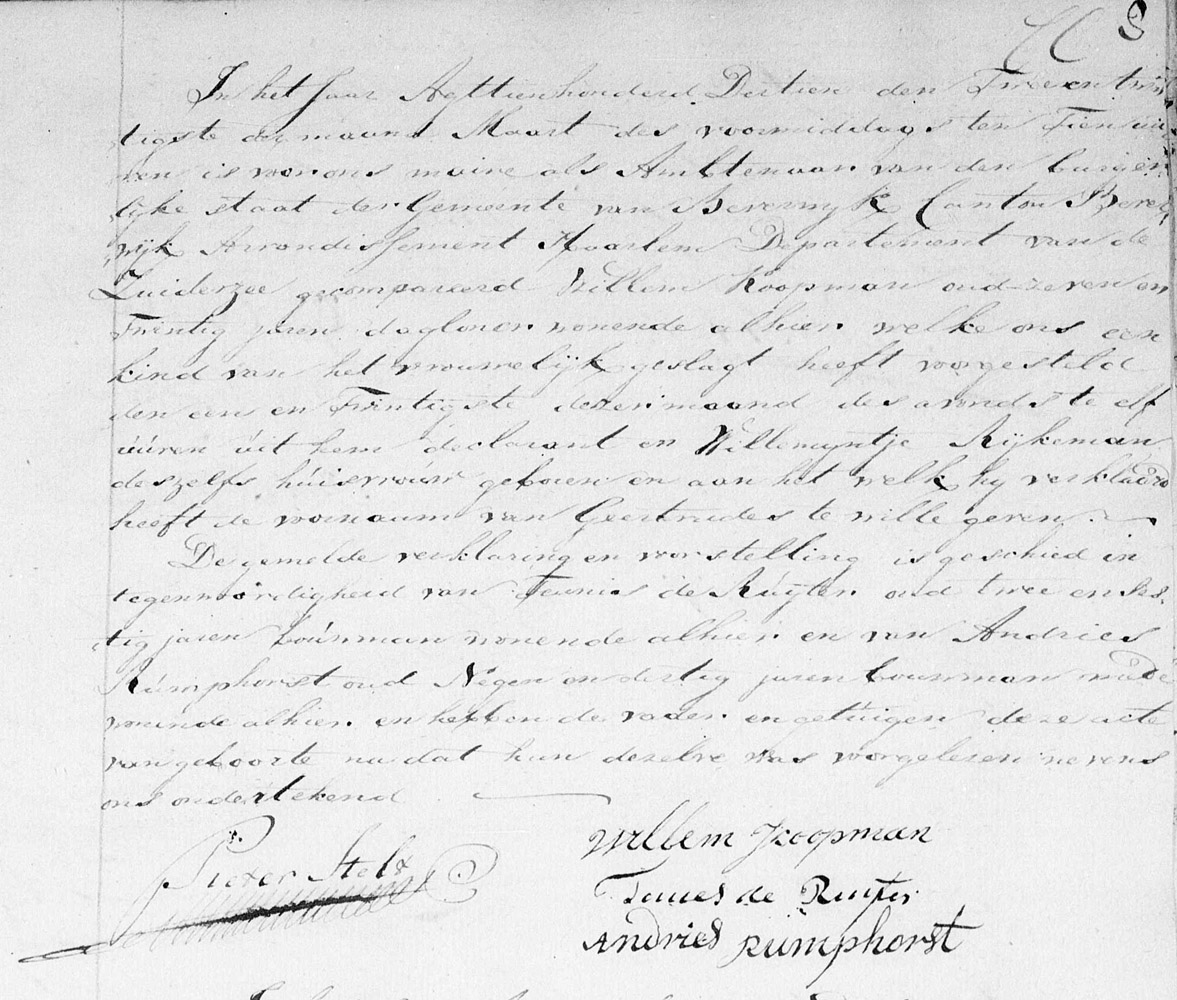 8
In het Jaar Agttienhonderd Dertien den Twee en twin
tigste der maand Maart des voormiddags ten Tien uu
ren is voor ons maire als Ambtenaar van den burger
lijke staat der Gemeente van Beverwijk Canton Bever
wijk Arrondissement Haarlem Departement van de
Zuiderzee gecompareerd Willem Koopman oud zeven en
Twintig jaren dagloner wonende alhier welke ons een
kind van het vrouwelijk geslagt heeft voorgesteld
den een en Twintigste dezer maand des avonds te elf
uúren úit hem declarant en Willemyntje Rijkeman
deszelfs húisvroúw geboren en aan het welk hy verklaard
heeft de voornaam van Geertrudes te wille geven.
De gemelde verklaring en voorstelling is geschied in
tegenwoordigheid van Teunis de Ruijter oud twee en ses
tig jaren boúwman wonende alhier en van Andries
Rúmphorst oud Negen en dertig jaren bouwman mede
wonende alhier en hebben de vader en getuigen deze acte
van geboorte na dat hun dezelve was voorgelezen nevens
ons ondertekend
Willem Koopman
Pieter Stelt
Teunes de Ruiter
Andries Rumphorst